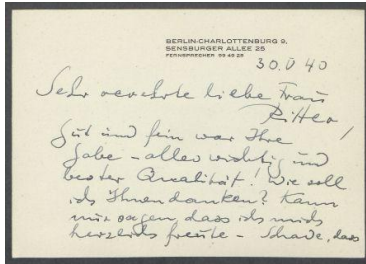 BERLIN-CHARLOTTENBURG 9,
SENSBURGER ALLEE 25
FERNSPRECHER 99 46 29
30. V 40
Sehr verehrte liebe Frau
Ritter!
Gut und fein war Ihre
Gabe – alles wichtig und
bester Qualität! Wie soll
ich Ihnen danken? Kann
nur sagen, dass ich mich
herzlich freute – Schade, dass